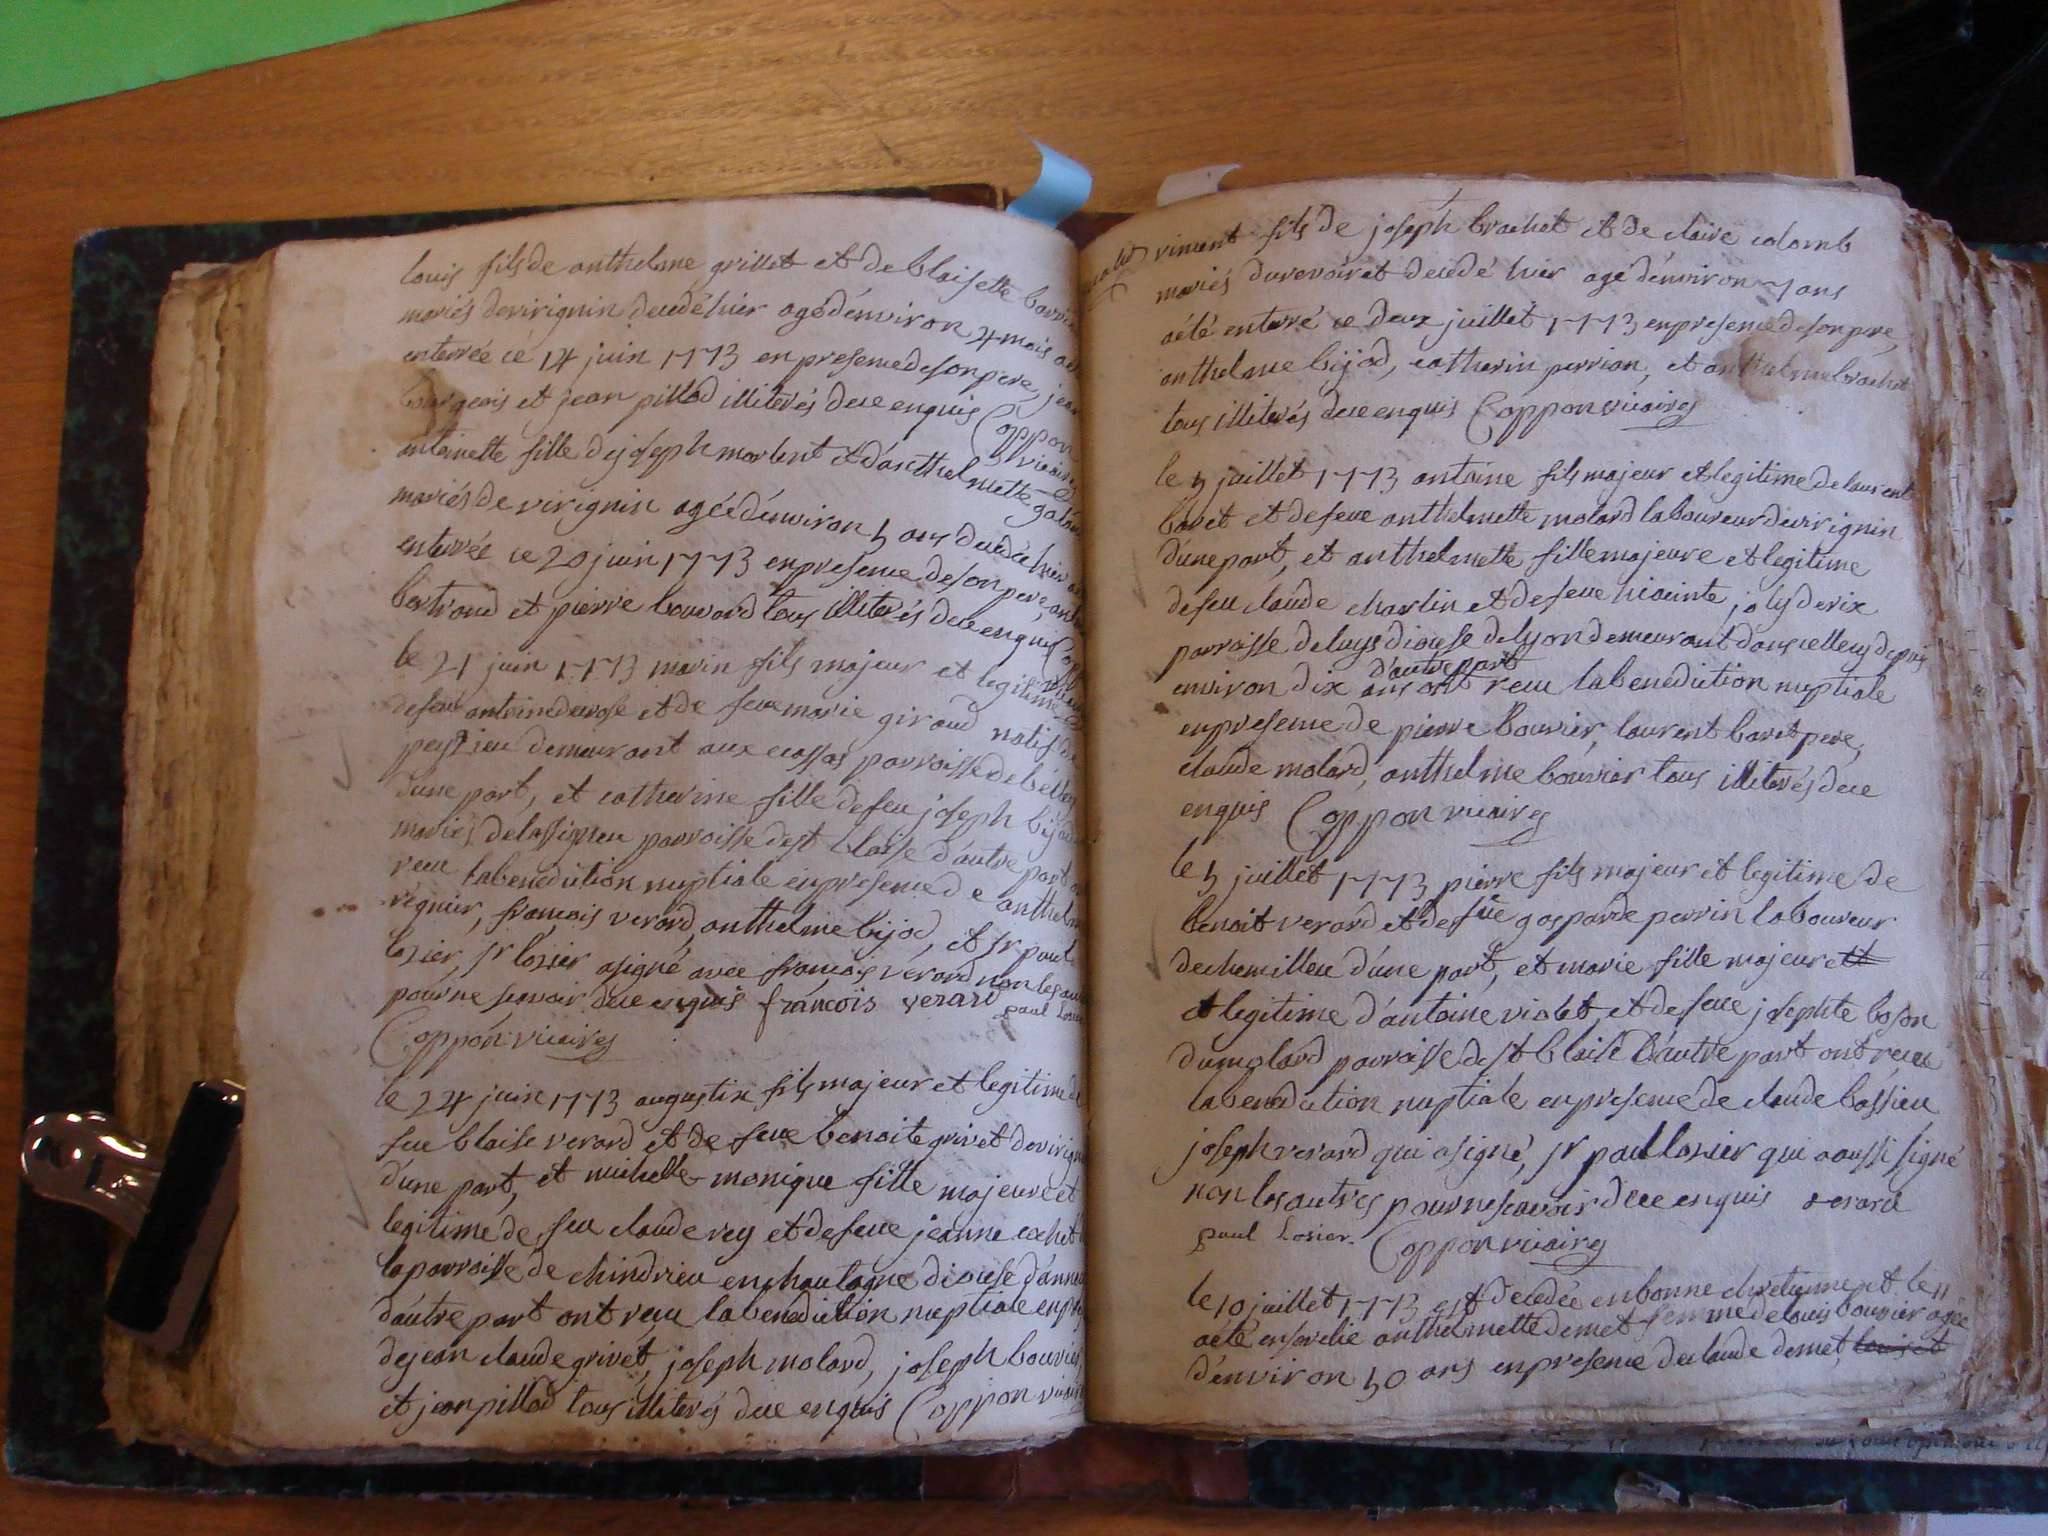 louis fils de anthelme grillet et de blaisette
mariés de virignin decedé hier agé d'environ 4 mois
enterrée ce 14 juin 1773 en presence de son pere, jean
bourgeois et jean pillod illiterés de ce enquis Coppon
vicaire
antoinette fille de joseph morlent et d'anthelmette
mariés de virignin agée d'environ 5 ans decedée hier
enterrée ce 20 juin 1773 en presence de son pere,
bertrand et pierre bouvard tous illiterés de ce enquis
le 21 juin 1773 marin fils majeur et legitime
de feu antoine et de feue marie giraud natif de
peyzieu demeurant aux ecassas parroisse de
d'une part, et catherine fille de feu joseph
mariés de lassignieu parroisse de st blaise d'autre part
receu la benediction nuptiale en presence de
regnier, francois verard, anthelme bijod, et sr paul
losier, sr losier a signé avec francois verard non les
pour ne scavoir de ce enquis francois verard paul
Coppon vicaire
le 24 juin 1773 augustin fils majeur et legitime de
feu blaise verard et de feue benoite grivet de
d'une part, et michelle monique fille majeure et
legitime de feu claude rey et de feue jeanne cochet
la parroisse de chindrieu en chautagne diocese
d'autre part ont receu la benediction nuptiale en
de jean claude grivet, joseph molard, joseph bouvier,
et jean pillod tous illiterés de ce enquis Coppon vicaire
vincent fils de joseph brachet et de claire colomb
mariés du revoiret decedé hier agé d'environ 7 ans
a été enterré ce deux juillet 1773 en presence de son pere,
anthelme bijod, catherin perrian, et anthelme brachet
tous illiterés de ce enquis Coppon vicaire
le 5 juillet 1773 antoine fils majeur et legitime de laurent
baret et de feue anthelmette molard laboureur de virignin
d'une part, et anthelmette fille majeure et legitime
de feu claude charlin et de feue hiacinte joly de rix
parroisse de luys diocese de lyon demeurant dans celle cy depuis
d'autre part
environ dix ans ont receu la benediction nuptiale
en presence de pierre bouvier, laurent baret pere,
claude molard, anthelme bouvier tous illiterés de ce
enquis Coppon vicaire
le 5 juillet 1773 pierre fils majeur et legitime de
benoit verard et de feüe gasparde perrin laboureur
de chemilieu d'une part, et marie fille majeure
et legitime d'antoine violet et de feue josephte boson
du molard parroisse de st blaise d'autre part ont receu
la benediction nuptiale en presence de claude bassieu
joseph verard qui a signé, sr paul losier qui a aussi signé
non les autres pour ne scavoir de ce enquis verard
paul Losier. Coppon vicaire
le 10 juillet 1773 est decedée en bonne chretienne et le 11
a été ensevelie anthelmette demet femme de louis bouvier agée
d'environ 50 ans en presence de claude demet